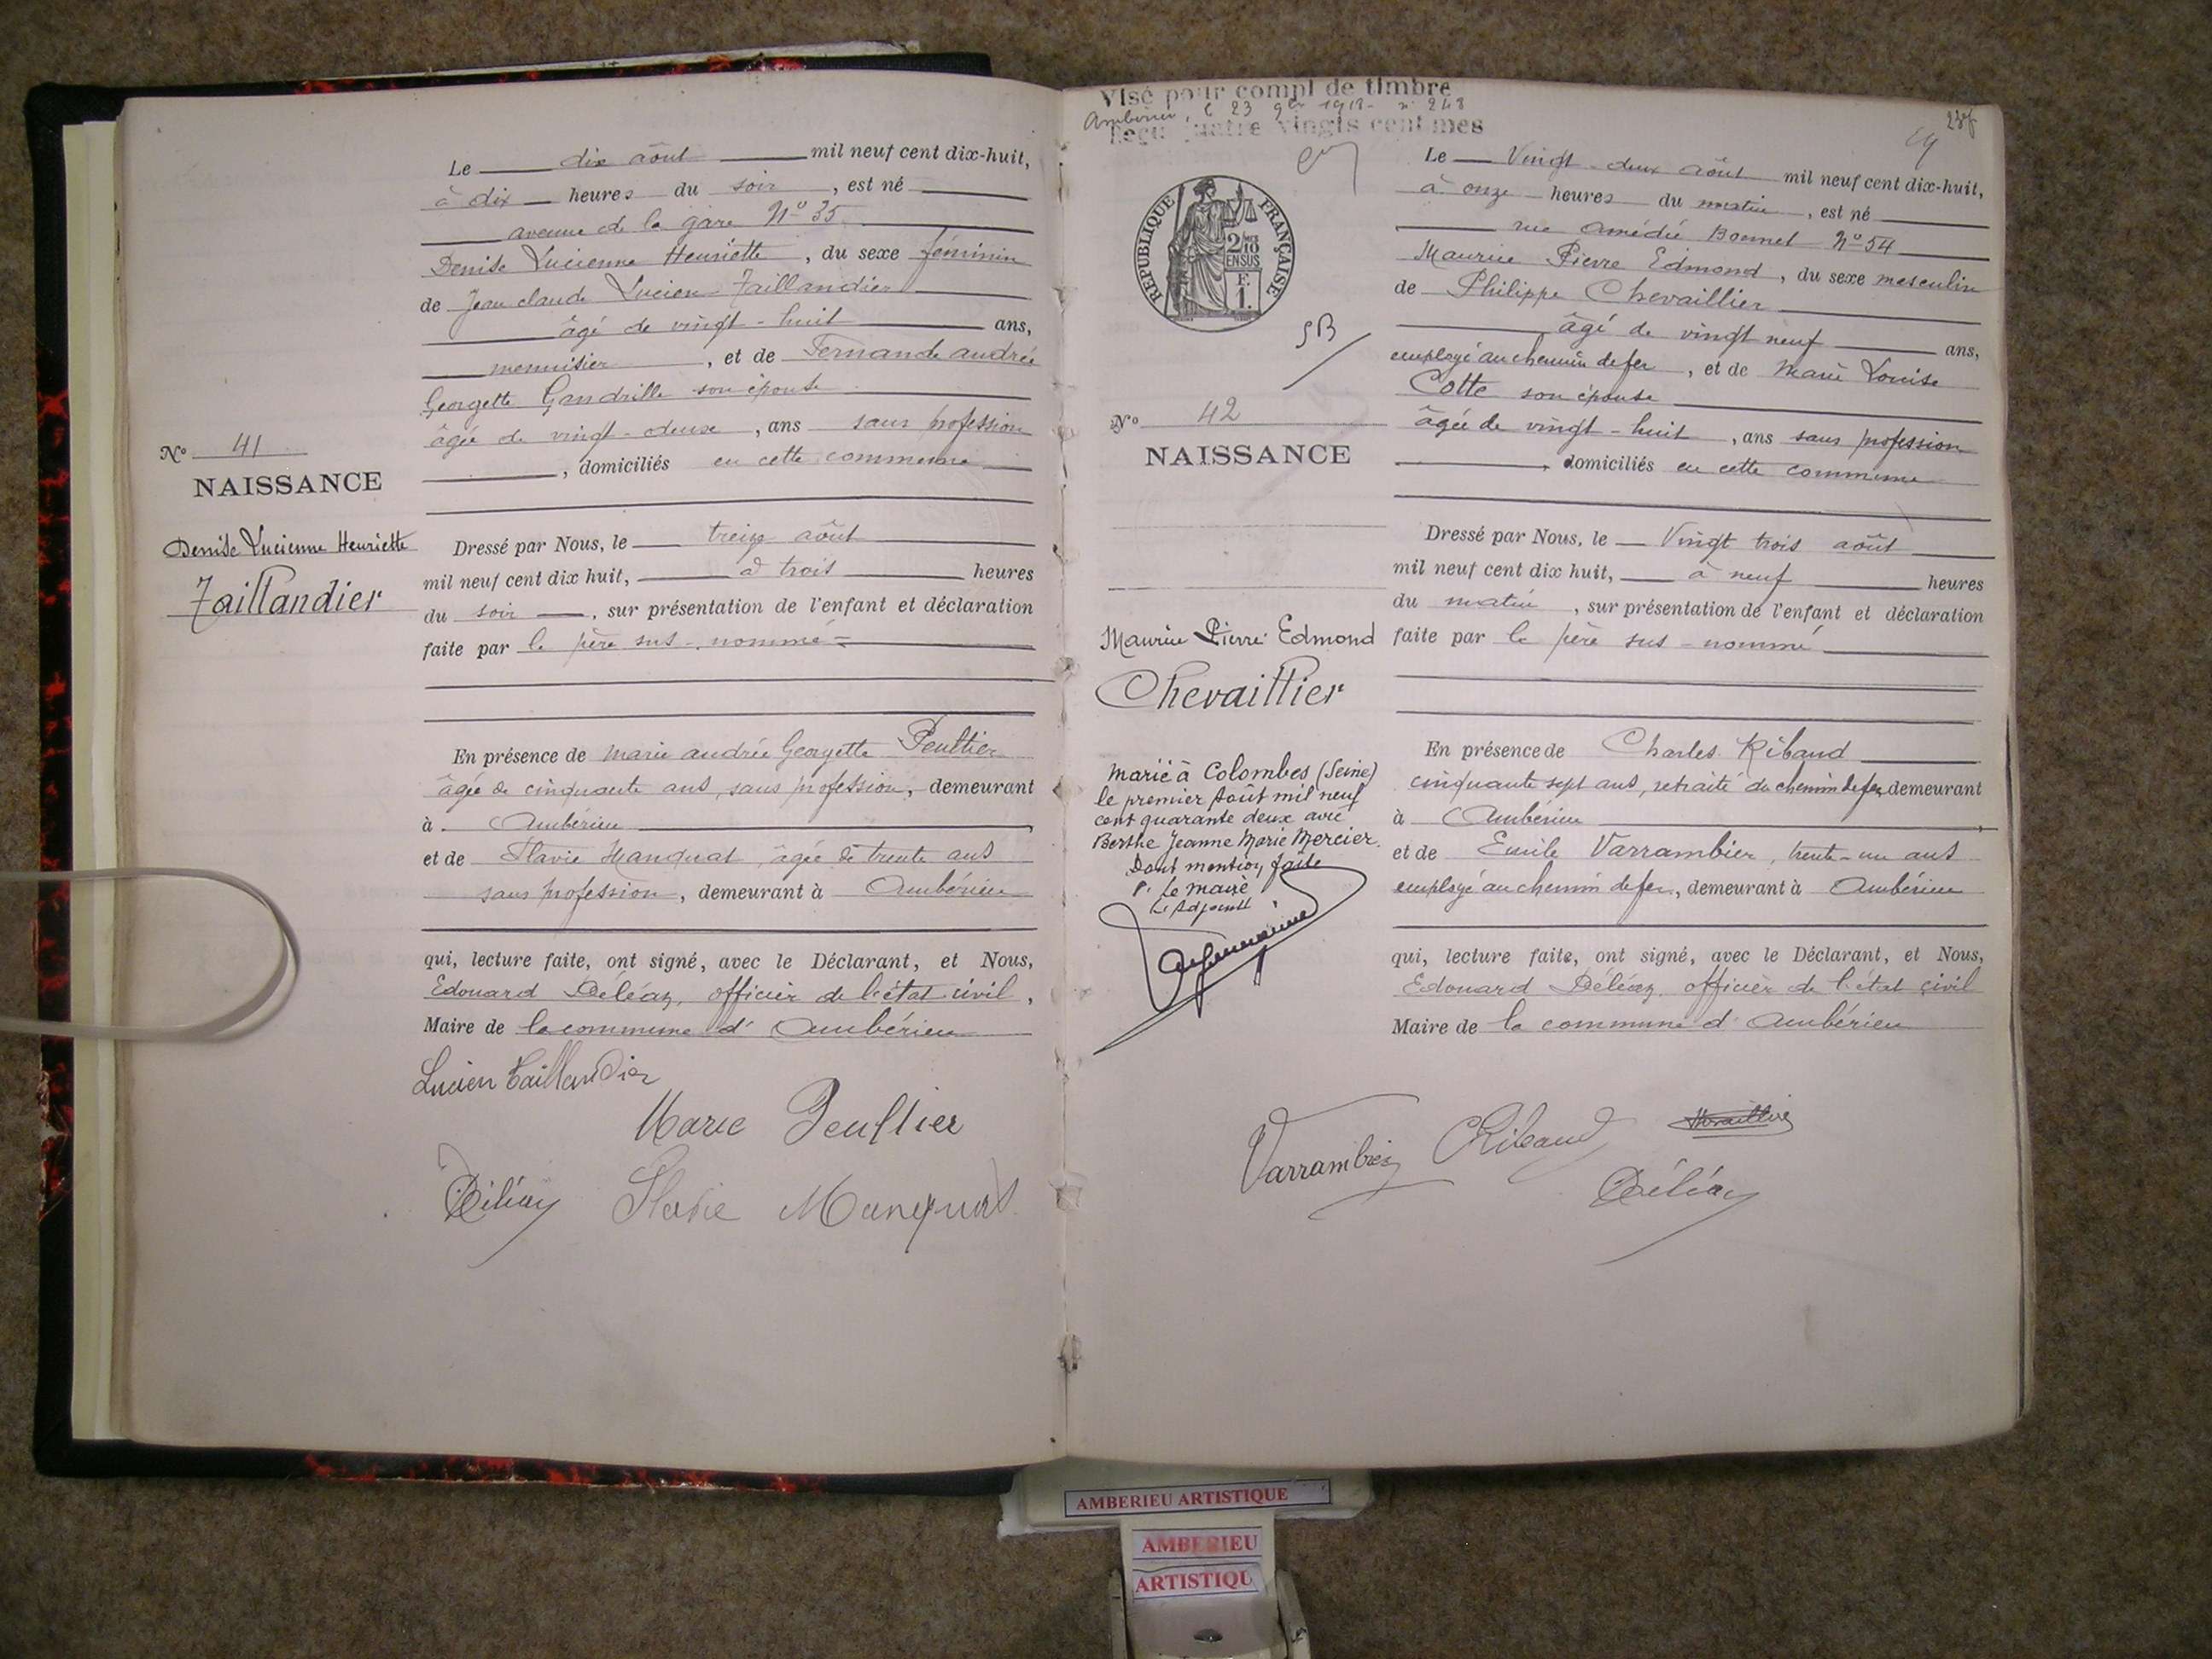 Le dix août mil neuf cent dix-huit,
à dix heures du soir, est né
avenue de la gare No 35
Denise Lucienne Henriette, du sexe féminin
de Jean claude Lucien Taillandier
âgé de vingt-huit ans,
menuisier, et de Fernande andrée
Georgette Gandrille son épouse
âgée de vingt-deux, ans sans profession
, domiciliés en cette commune
No 41
NAISSANCE
Denise Lucienne Henriette
Taillandier
Dressé par Nous, le treize août
mil neuf cent dix huit, à trois heures
du soir, sur présentation de l'enfant et déclaration
faite par le père sus-nommé
En présence de marie andrée Georgette Peultier
âgée de cinquante ans, sans profession, demeurant
à Ambérieu
et de Flavie Manquat âgée de trente ans
sans profession, demeurant à Ambérieu
qui, lecture faite, ont signé, avec le Déclarant, et Nous,
Edouard Déléaz, officier de l'état civil,
Maire de la commune d'Ambérieu
Lucien Taillandier
Marie Peultier
Déléaz Flavie Manquat
Visé pour compl de timbre
Ambérieu, le 23 9bre 1918 - no 248
Reçu quatre vingts centimes
REPUBLIQUE FRANÇAISE
2/10
EN SUS
F.
1.
No 42
NAISSANCE
Maurice Pierre Edmond
Chevaillier
Marié à Colombes (Seine)
le premier Août mil neuf
cent quarante deux avec
Berthe Jeanne Marie Mercier.
Dont mention faite
P. Le Maire
L'Adjoint
Le Vingt-deux août mil neuf cent dix-huit,
à onze heures du matin, est né
rue Amédée Bonnet No 54
Maurice Pierre Edmond, du sexe masculin
de Philippe Chevaillier
âgé de vingt neuf ans,
employé au chemin de fer, et de Marie Louise
Cotte son épouse
âgée de vingt-huit, ans sans profession
, domiciliés en cette commune
Dressé par Nous, le Vingt trois août
mil neuf cent dix huit, à neuf heures
du matin, sur présentation de l'enfant et déclaration
faite par le père sus-nommé
En présence de Charles Ribaud
cinquante sept ans, retraité du chemin de fer, demeurant
à Ambérieu
et de Emile Varrambier, trente-un ans
employé au chemin de fer, demeurant à Ambérieu
qui, lecture faite, ont signé, avec le Déclarant, et Nous,
Edouard Déléaz, officier de l'état civil
Maire de la commune d'Ambérieu
Varrambier CRibaud
Déléaz
AMBERIEU ARTISTIQUE
AMBERIEU
ARTISTIQU